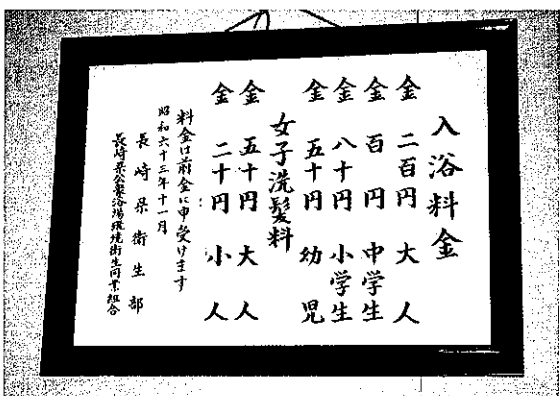 入浴料金
金 二百円 大人
金 百円 中学生
金 八十円 小学生
金 五十円 幼児
女子洗髪料
金 五十円 大人
金 二十円 小人
料金は前金に申受けます
昭和六十三年十一月
長崎県衛生部
長崎県公衆浴場環境衛生同業組合